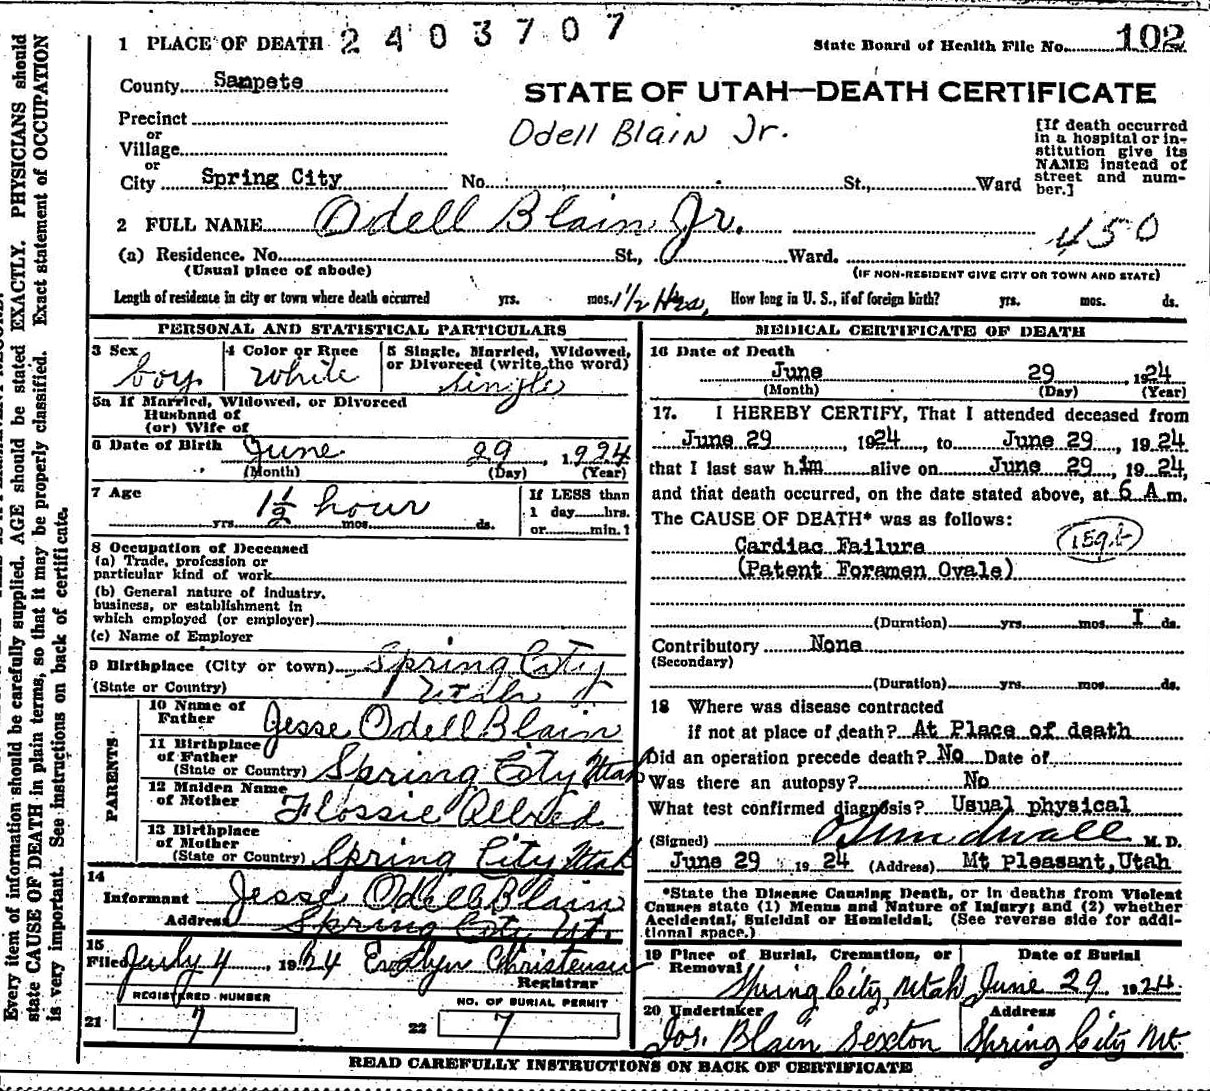 1 PLACE OF DEATH 2403707
State Board of Health File No. 102
County Sanpete
STATE OF UTAH—DEATH CERTIFICATE
Precinct
or
Village
or
City Spring City No. St., Ward
Odell Blain Jr.
[If death occurred
in a hospital or in-
stitution give its
NAME instead of
street and num-
ber.]
2 FULL NAME Odell Blain Jr.
450
(a) Residence. No. St., Ward.
(Usual place of abode)
(IF NON-RESIDENT GIVE CITY OR TOWN AND STATE)
Length of residence in city or town where death occurred yrs. mos. 1½ Hrs, How long in U. S., if of foreign birth? yrs. mos. ds.
PERSONAL AND STATISTICAL PARTICULARS
3 Sex
boy
4 Color or Race
White
5 Single, Married, Widowed,
or Divorced (write the word)
single
5a If Married, Widowed, or Divorced
Husband of
(or) Wife of
6 Date of Birth June 29, 1924
(Month) (Day) (Year)
7 Age
1½ hour
yrs. mos. ds.
If LESS than
1 day hrs.
or min.
8 Occupation of Deceased
(a) Trade, profession or
particular kind of work
(b) General nature of industry.
business, or establishment in
which employed (or employer)
(c) Name of Employer
9 Birthplace (City or town) Spring City
(State or Country) Utah
PARENTS
10 Name of
Father Jesse Odell Blain
11 Birthplace
of Father
(State or Country) Spring City Utah
12 Maiden Name
of Mother Flossie Allred
13 Birthplace
of Mother
(State or Country) Spring City Utah
14
Informant Jesse Odell Blain
Address Spring City Ut.
15
Filed July 4, 1924 Evelyn Christensen
Registrar
REGISTERED NUMBER
NO. OF BURIAL PERMIT
21 7
22 7
MEDICAL CERTIFICATE OF DEATH
16 Date of Death
June 29, 1924
(Month) (Day) (Year)
17. I HEREBY CERTIFY, That I attended deceased from
June 29, 1924, to June 29, 1924
that I last saw h im alive on June 29, 1924,
and that death occurred, on the date stated above, at 6 A.m.
The CAUSE OF DEATH* was as follows:
Cardiac Failure
(Patent Foramen Ovale)
(Duration) yrs. mos. I ds.
Contributory None
(Secondary)
(Duration) yrs. mos. ds.
18 Where was disease contracted
if not at place of death? At Place of death
Did an operation precede death? No Date of
Was there an autopsy? No
What test confirmed diagnosis? Usual physical
(Signed) Sundwall M. D.
June 29 1924 (Address) Mt Pleasant, Utah
*State the Disease Causing Death, or in deaths from Violent
Causes state (1) Menus and Nature of Injury; and (2) whether
Accidental, Suicidal or Homicidal. (See reverse side for addi-
tional space.)
19 Place of Burial, Cremation, or
Removal
Spring City, Utah
Date of Burial
June 29. 1924
20 Undertaker
Jos. Blain Sexton
Address
Spring City Ut.
READ CAREFULLY INSTRUCTIONS ON BACK OF CERTIFICATE
Every item of information should be carefully supplied. AGE should be stated EXACTLY. PHYSICIANS should
state CAUSE OF DEATH in plain terms, so that it may be properly classified. Exact statement of OCCUPATION
is very important. See instructions on back of certificate.